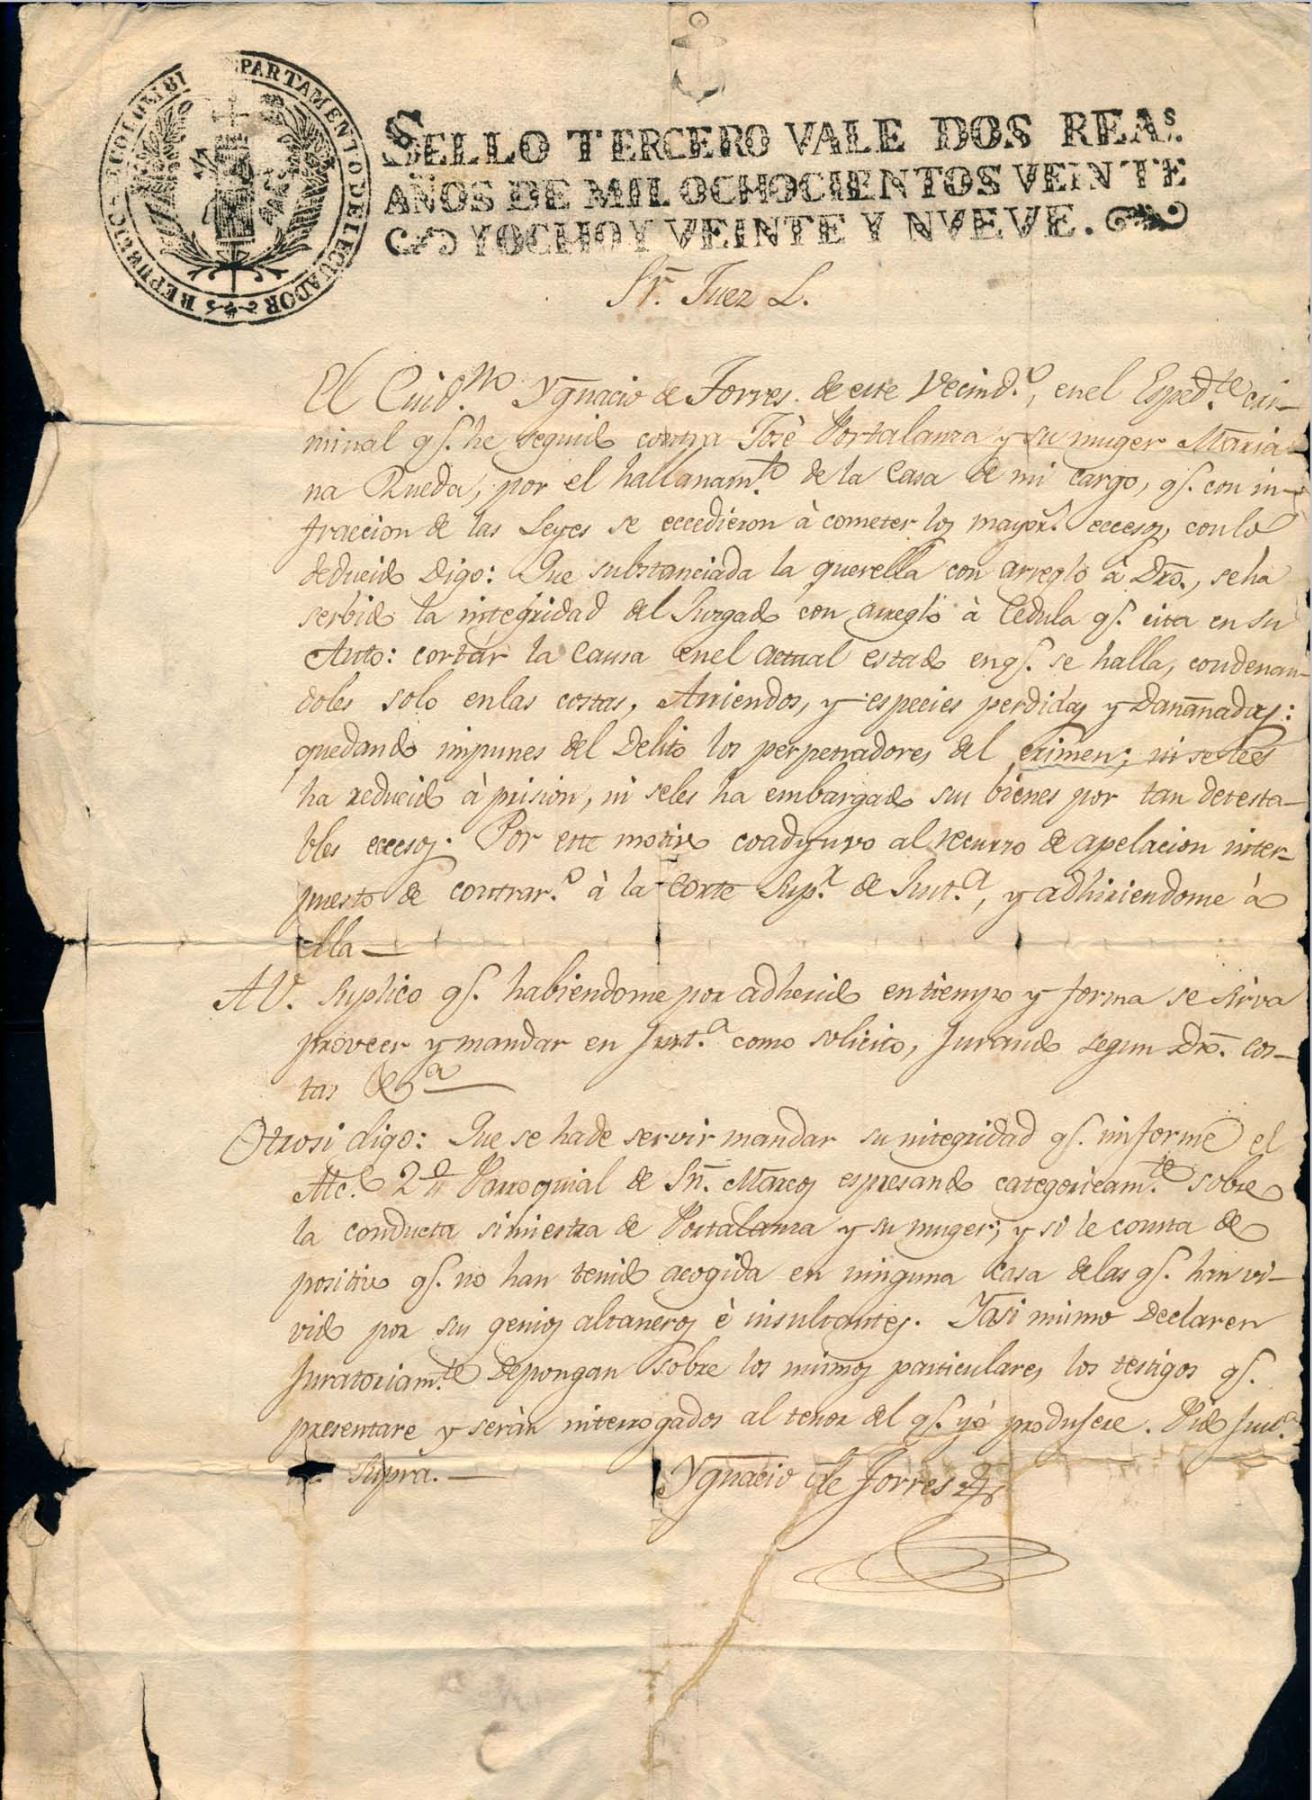 REPUBLICA DE COLOMBI PARTAMENTO DEL ECUADOR
SELLO TERCERO VALE DOS REAs.
AÑOS DE MIL OCHOCIENTOS VEINTE
Y OCHO Y VEINTE Y NVEVE.
Sr. Juez L.
El Ciud.no Ygnacio de Torres de este Vecind.o, en el Exped.te cri-
minal q.e he seguido contra José Portalanza y su muger Maria-
na Rueda, por el hallanam.to de la Casa de mi cargo, q.e con in-
fraccion de las Leyes se eccedieron à cometer los mayor.s eccesos, con lo
deducido Digo: Que substanciada la querella con arreglo à Dro., se ha
serbido la integridad del Juzgado con arreglo à Cedula q.e cita en su
Auto: cortar la Causa en el actual estado en q.e se halla, condenan-
doles solo en las costas, Arriendos, y especies perdidas y Dañadas:
quedando impunes del Delito los perpetradores del crimen; ni se les
ha reducido à prision, ni seles ha embargado sus bienes por tan detesta-
bles eccesos. Por este motivo coadyuvo al recurzo de apelacion inter-
puesto de contrar.o à la Corte Sup.r de Just.a, y adhiriendome à
ella—
A V. Suplico q.e habiendome por adherido en tiempo y forma se sirva
proveer y mandar en Just.a como solicito, Jurando segun Dro. cos-
tas &.a
Otrosi digo: Que se hade servir mandar su integridad q.e informe el
Alc.e 2.o Parroquial de Sn. Marcos espresando categoricam.te sobre
la conducta siniestra de Portalanza y su muger; y si le consta de
positivo q.e no han tenido acogida en ninguna Casa delas q.e han vi-
vido por sus genios altaneros è insultantes. Y asi mismo Declaren
Juratoriam.te depongan sobre los mismos particulares los testigos q.e
presentare y seràn interrogados al tenor del q.e yó produjere. Pido Just.a
Supra.—
Ygnacio de Torres